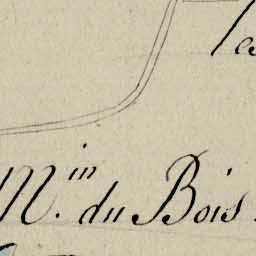 les
M.in du Bois.